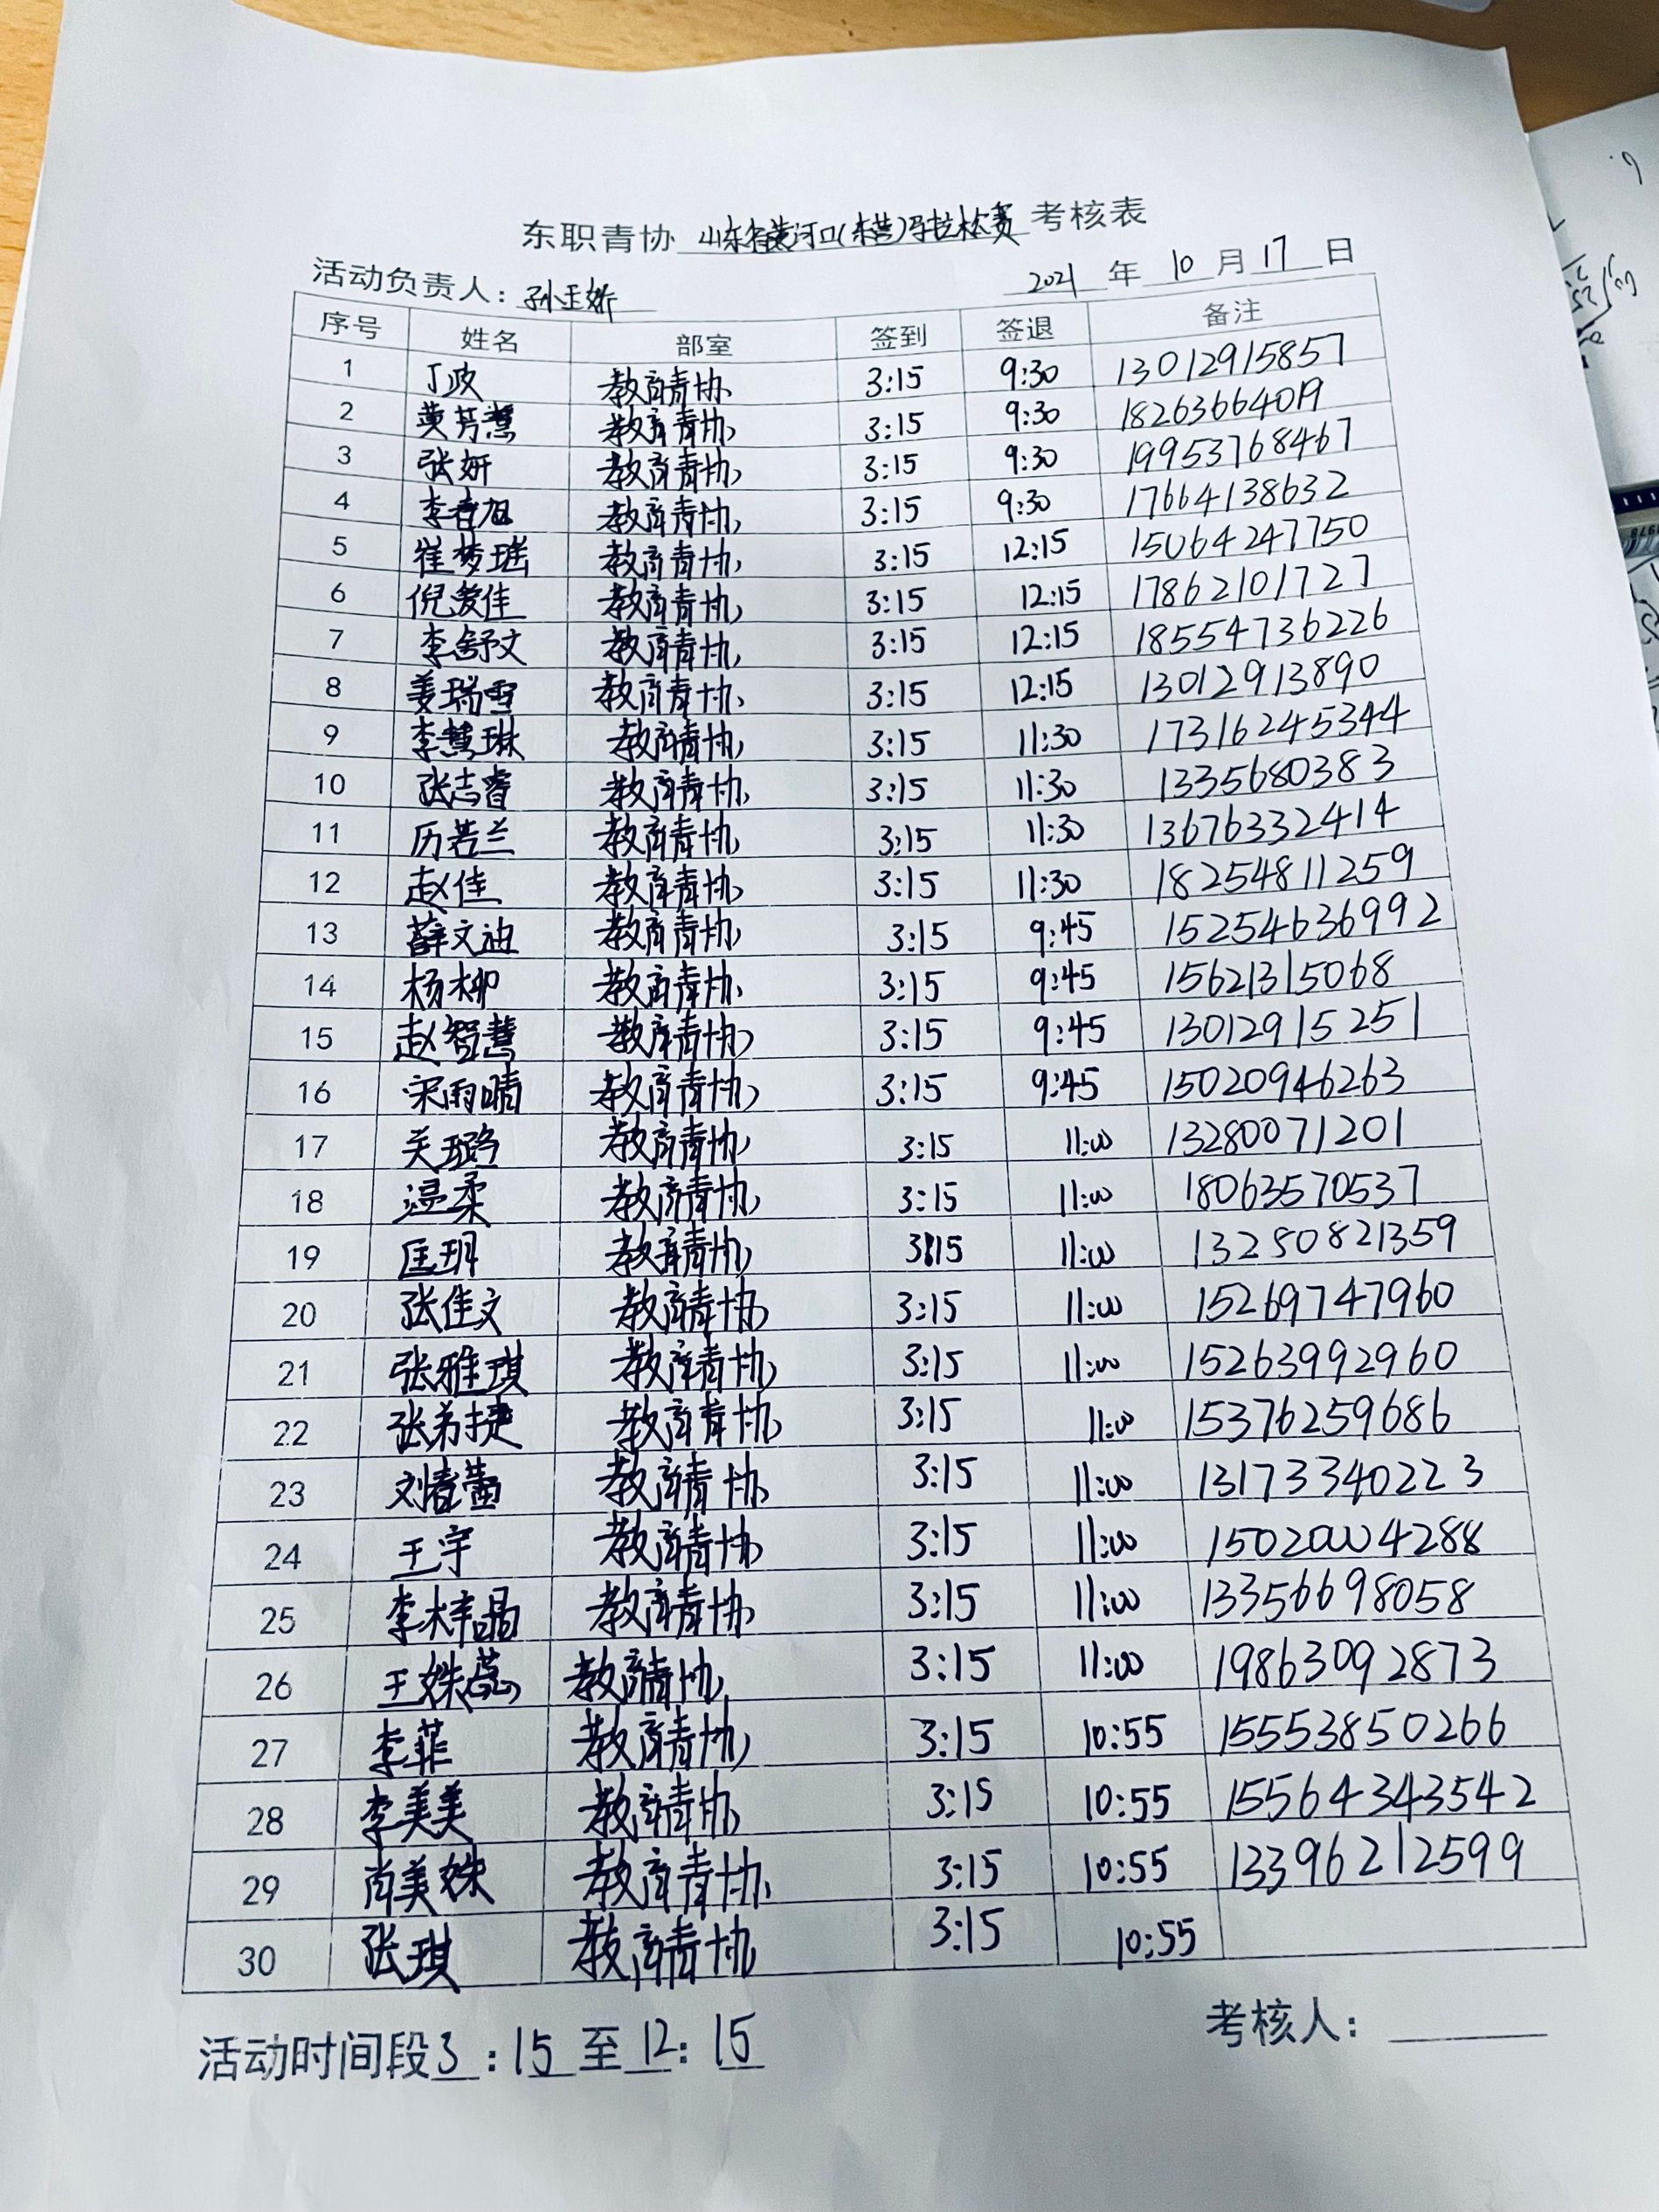 东职青协 山东省黄河口(东营)马拉松赛 考核表
活动负责人: 孙玉娇 2021 年 10 月 17 日
序号 姓名 部室 签到 签退 备注
1 丁政 教育青协 3:15 9:30 13012915857
2 黄芳慧 教育青协 3:15 9:30 18263664019
3 张妍 教育青协 3:15 9:30 19953768467
4 李香旭 教育青协 3:15 9:30 17664138632
5 崔梦瑶 教育青协 3:15 12:15 15064247750
6 倪爱佳 教育青协 3:15 12:15 17862101727
7 李舒文 教育青协 3:15 12:15 18554736226
8 姜瑞雪 教育青协 3:15 12:15 13012913890
9 李慧琳 教育青协 3:15 11:30 17316245344
10 张志睿 教育青协 3:15 11:30 1335680383
11 历若兰 教育青协 3:15 11:30 13676332414
12 赵佳 教育青协 3:15 11:30 18254811259
13 薛文迪 教育青协 3:15 9:45 15254636992
14 杨柳 教育青协 3:15 9:45 15621315068
15 赵智慧 教育青协 3:15 9:45 13012915251
16 宋雨晴 教育青协 3:15 9:45 15020946263
17 关璐 教育青协 3:15 11:00 13280071201
18 温柔 教育青协 3:15 11:00 18063570537
19 匡玥 教育青协 3:15 11:00 13280821359
20 张佳文 教育青协 3:15 11:00 15269747960
21 张雅琪 教育青协 3:15 11:00 15263992960
22 张若捷 教育青协 3:15 11:00 15376259686
23 刘春蕾 教育青协 3:15 11:00 13173340223
24 王宇 教育青协 3:15 11:00 15020004288
25 李梓晶 教育青协 3:15 11:00 13356698058
26 王姝蕊 教育青协 3:15 11:00 19863092873
27 李菲 教育青协 3:15 10:55 15553850266
28 李美美 教育青协 3:15 10:55 15564343542
29 肖美姝 教育青协 3:15 10:55 13396212599
30 张琪 教育青协 3:15 10:55
活动时间段 3:15 至 12:15 考核人: